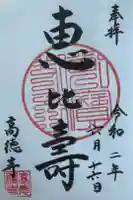 奉拝
令和二年
六月十六日
恵比壽
高徳寺